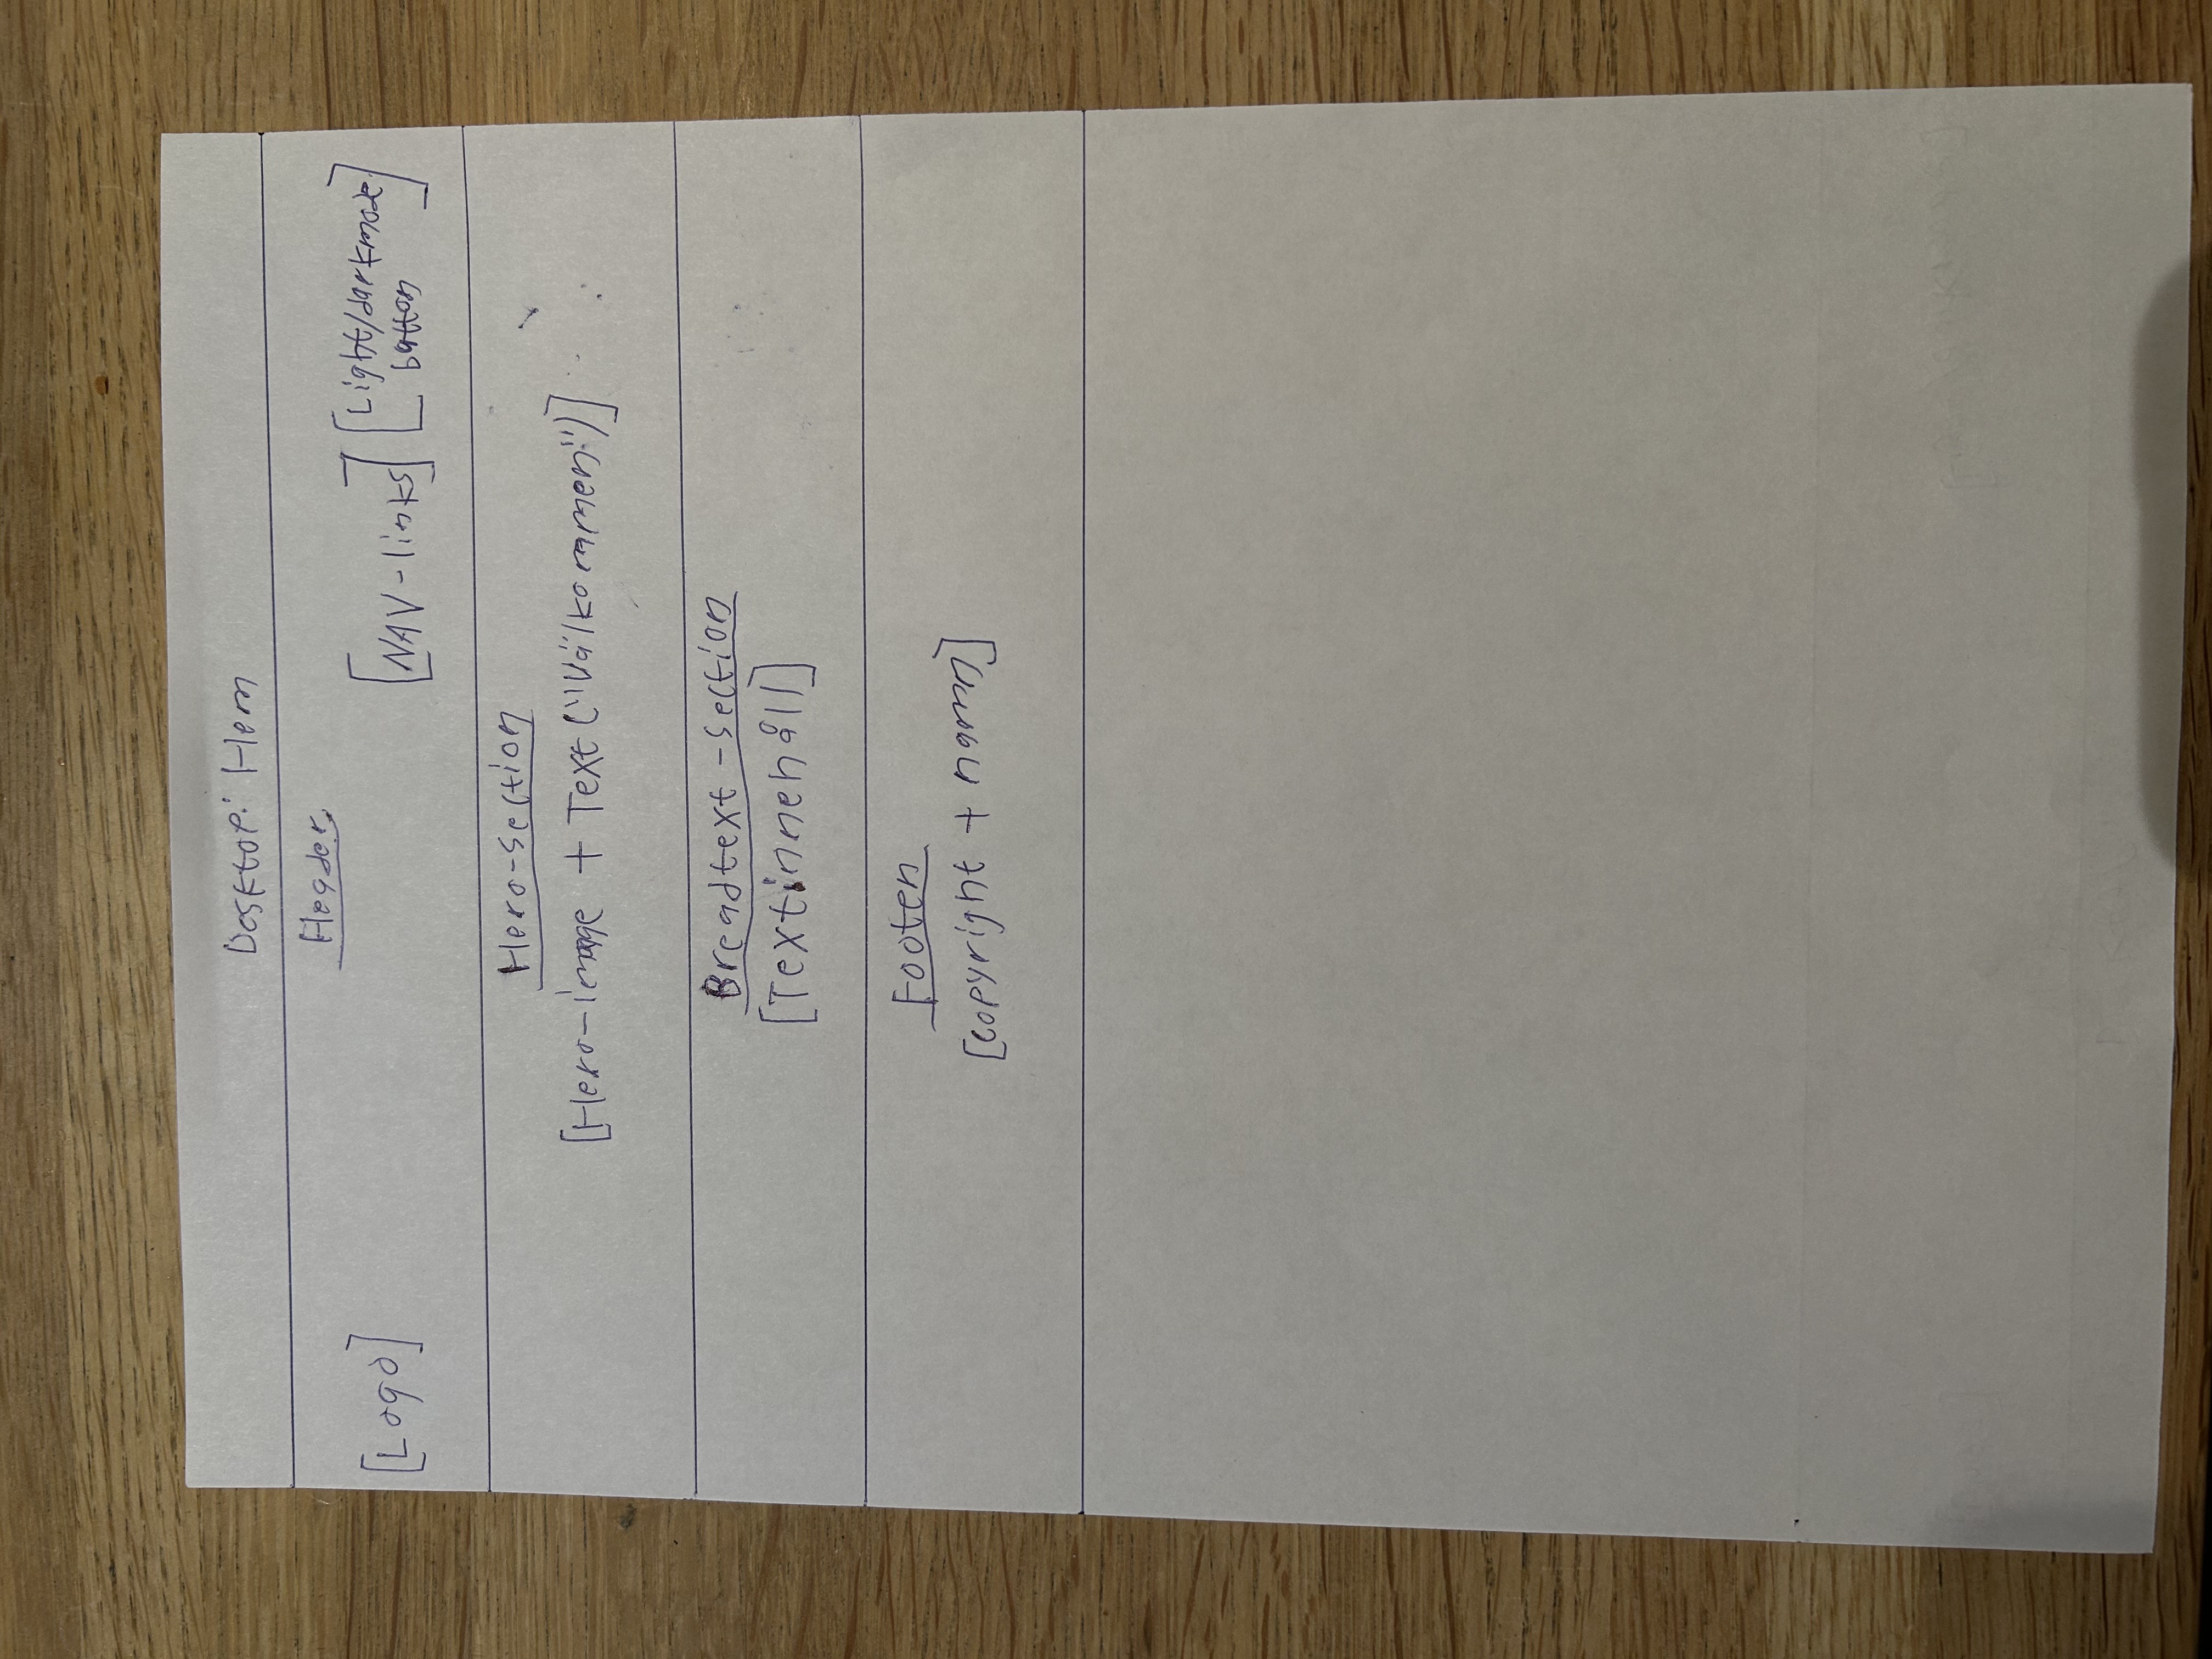 Desktop: Hem
Header
[Logo] [NAV-links] [Light/darkmode button]
Hero-section
[Hero-image + Text ("Välkommen")]
Breadtext-section
[Textinnehåll]
Footer
[copyright + namn]